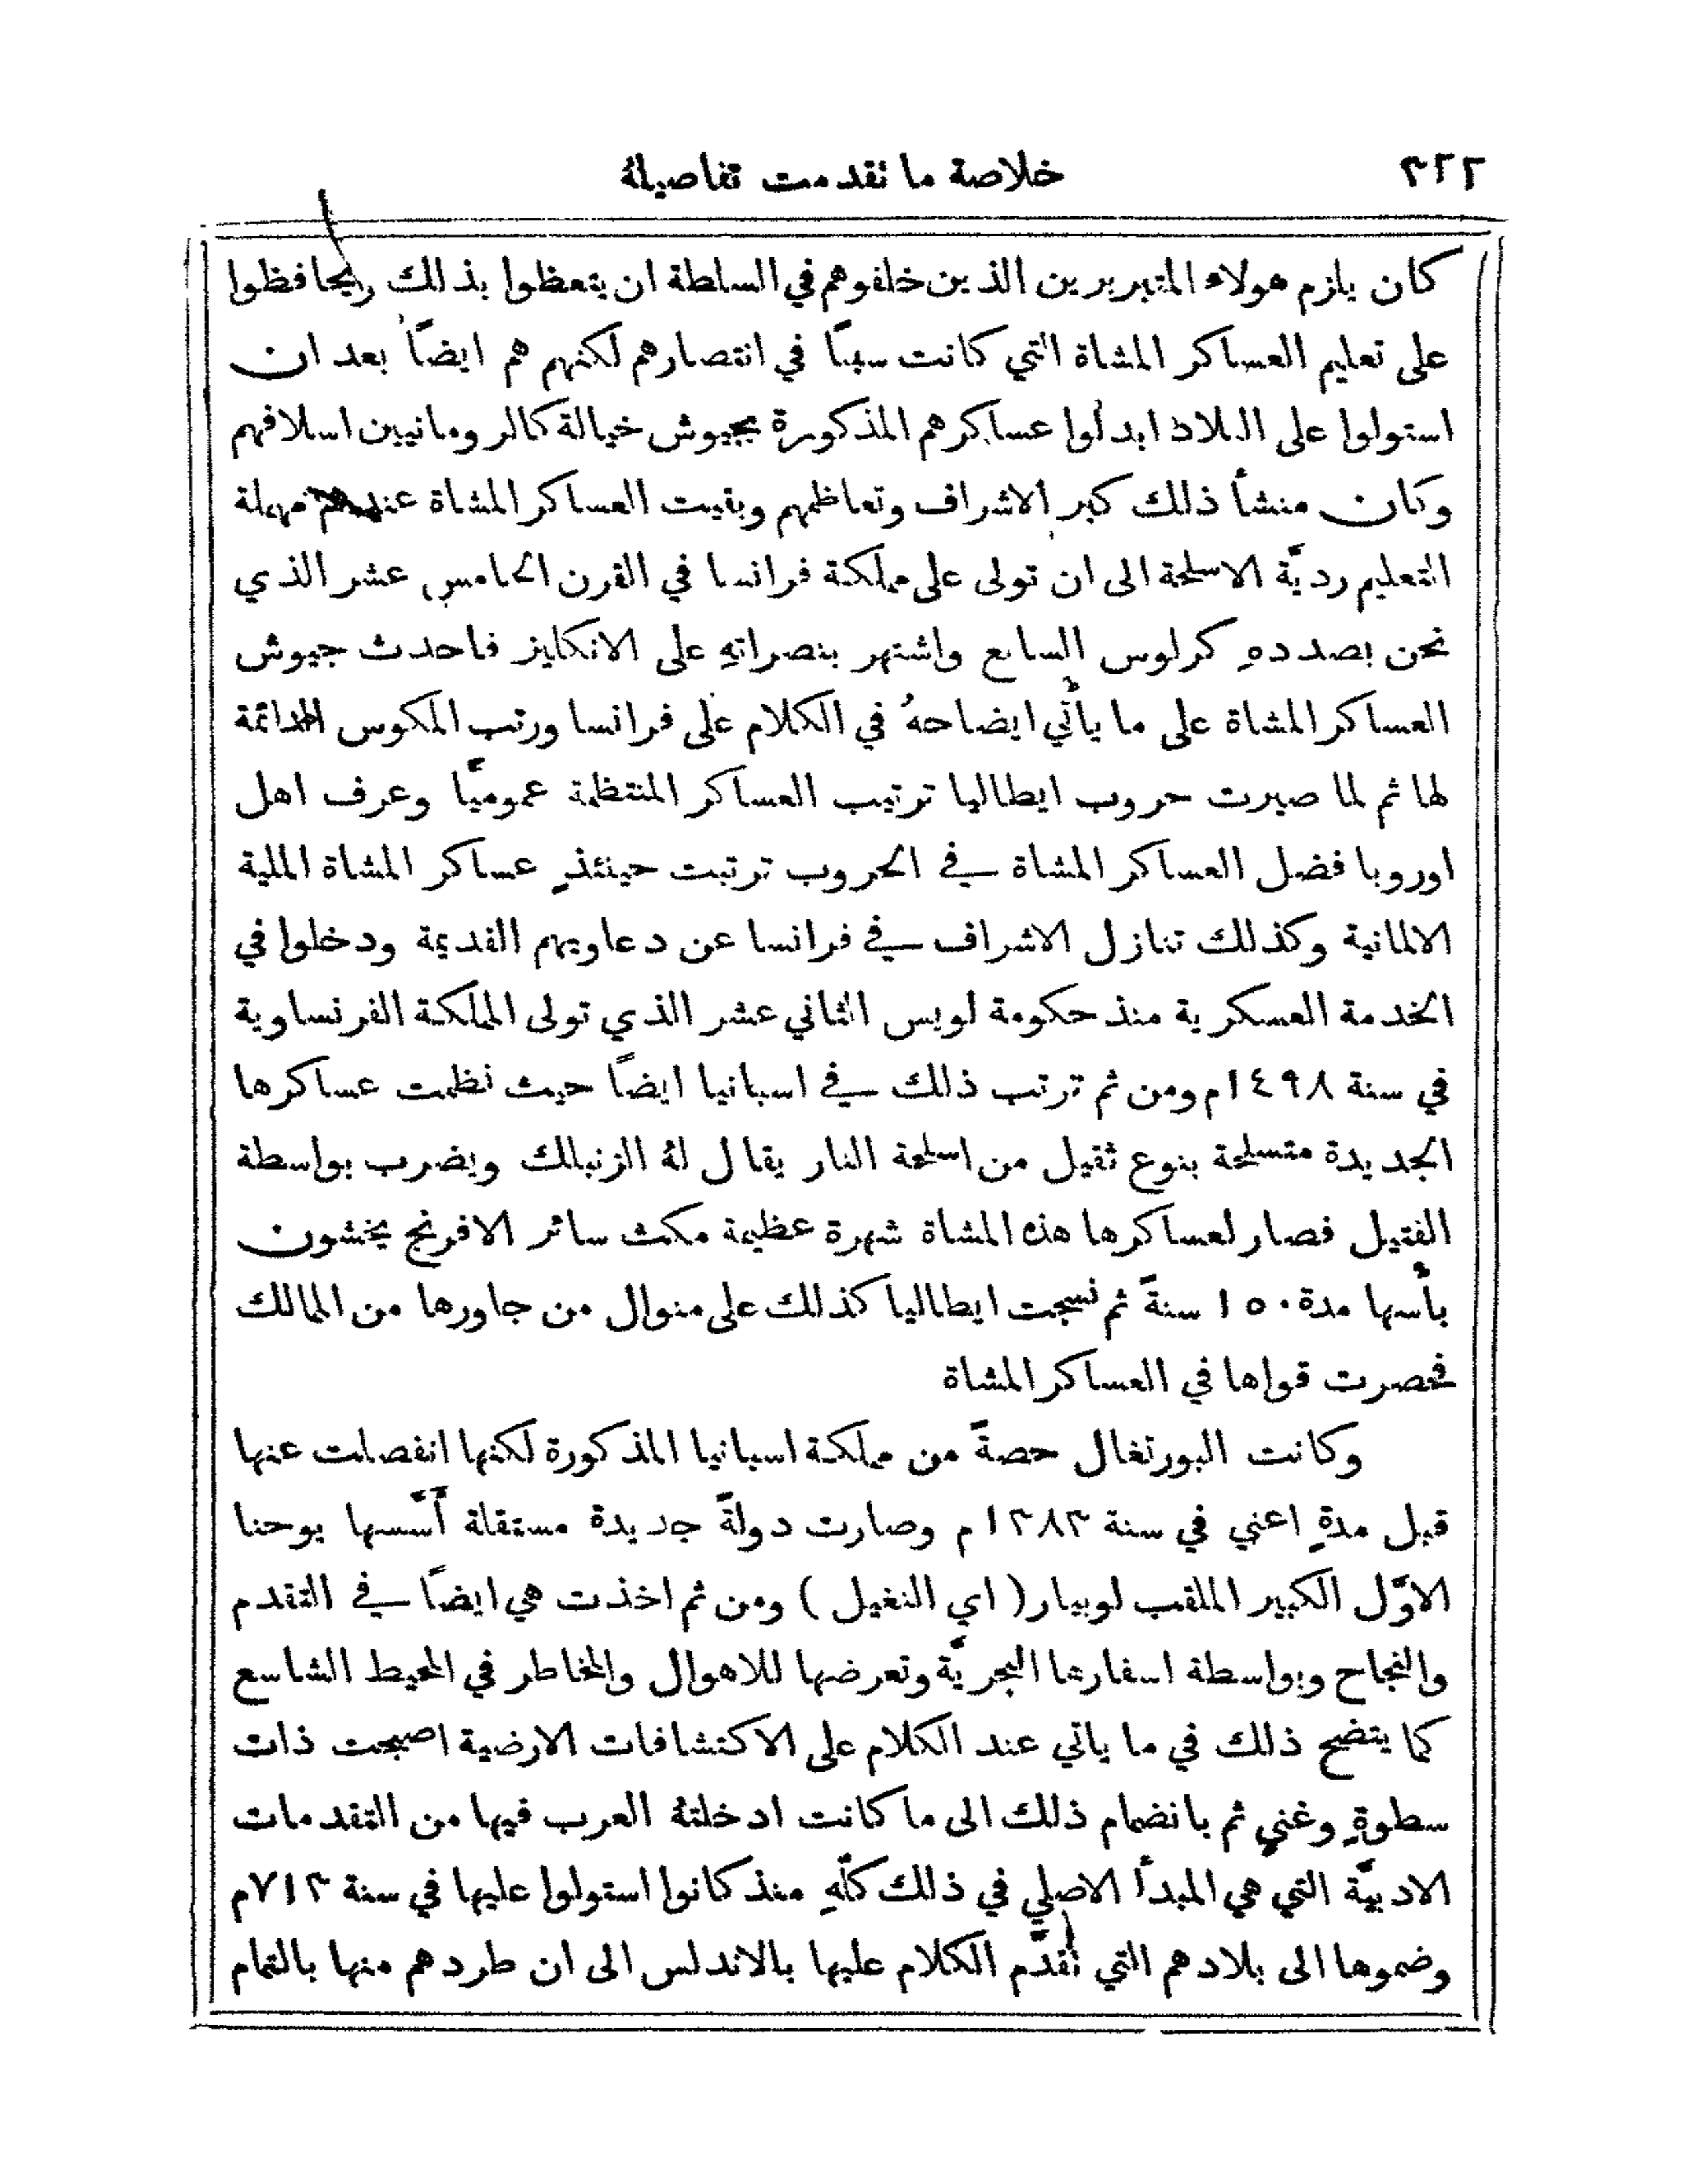 ٣٢٢ خلاصة ما نقدمت تفاصيلهُ
كان يلزم هولاء المتبربرين الذين خلفوهم في السلطة ان يتعظوا بذلك ويحافظوا
على تعليم العساكر المشاة التي كانت سببًا في انتصارهم لكنهم هم ايضًا بعد ان
استولوا على البلاد ابدلوا عساكرهم المذكورة بجيوش خيالة كالرومانيين اسلافهم
وكان منشأ ذلك كبر الاشراف وتعاظمهم وبقيت العساكر المشاة عندهم مهملة
التعليم رديَّة الاسلحة الى ان تولى على مملكة فرانسا في القرن الخامس عشر الذي
نحن بصددهِ كرلوس السابع واشتهر بنصراتهِ على الانكليز فاحدث جيوش
العساكر المشاة على ما يأتي ايضاحهُ في الكلام على فرانسا ورتب المكوس الدائمة
لها ثم لما صيرت حروب ايطاليا ترتيب العساكر المنتظمة عموميًّا وعرف اهل
اوروبا فضل العساكر المشاة في الحروب ترتبت حينئذٍ عساكر المشاة الملية
الالمانية وكذلك تنازل الاشراف في فرانسا عن دعاويهم القديمة ودخلوا في
الخدمة العسكرية منذ حكومة لويس الثاني عشر الذي تولى المملكة الفرنساوية
في سنة ١٤٩٨م ومن ثم ترتب ذلك في اسبانيا ايضًا حيث نظمت عساكرها
الجديدة متسلحة بنوع ثقيل من اسلحة النار يقال لهُ الزنبلك ويضرب بواسطة
الفتيل فصار لعساكرها هذه المشاة شهرة عظيمة مكث سائر الافرنج يخشون
بأسها مدة ١٥٠ سنةً ثم نسجت ايطاليا كذلك على منوال من جاورها من الممالك
فحصرت قواها في العساكر المشاة
وكانت البورتغال حصةً من مملكة اسبانيا المذكورة لكنها انفصلت عنها
قبل مدةٍ اعني في سنة ١٣٨٣م وصارت دولةً جديدة مستقلة أسَّسها يوحنا
الاوَّل الكبير الملقب لوبيار ( اي النغيل ) ومن ثم اخذت هي ايضًا في التقدم
والنجاح وبواسطة اسفارها البحريَّة وتعرضها للاهوال والمخاطر في المحيط الشاسع
كما يتضح ذلك في ما ياتي عند الكلام على الاكتشافات الارضية اصبحت ذات
سطوةٍ وغنىٍ ثم بانضمام ذلك الى ما كانت ادخلتهُ العرب فيها من التقدمات
الادبيَّة التي هي المبدأ الاصلي في ذلك كلّهِ منذ كانوا استولوا عليها في سنة ٧١٢م
وضموها الى بلادهم التي تُقدَّم الكلام عليها بالاندلس الى ان طردهم منها بالتمام